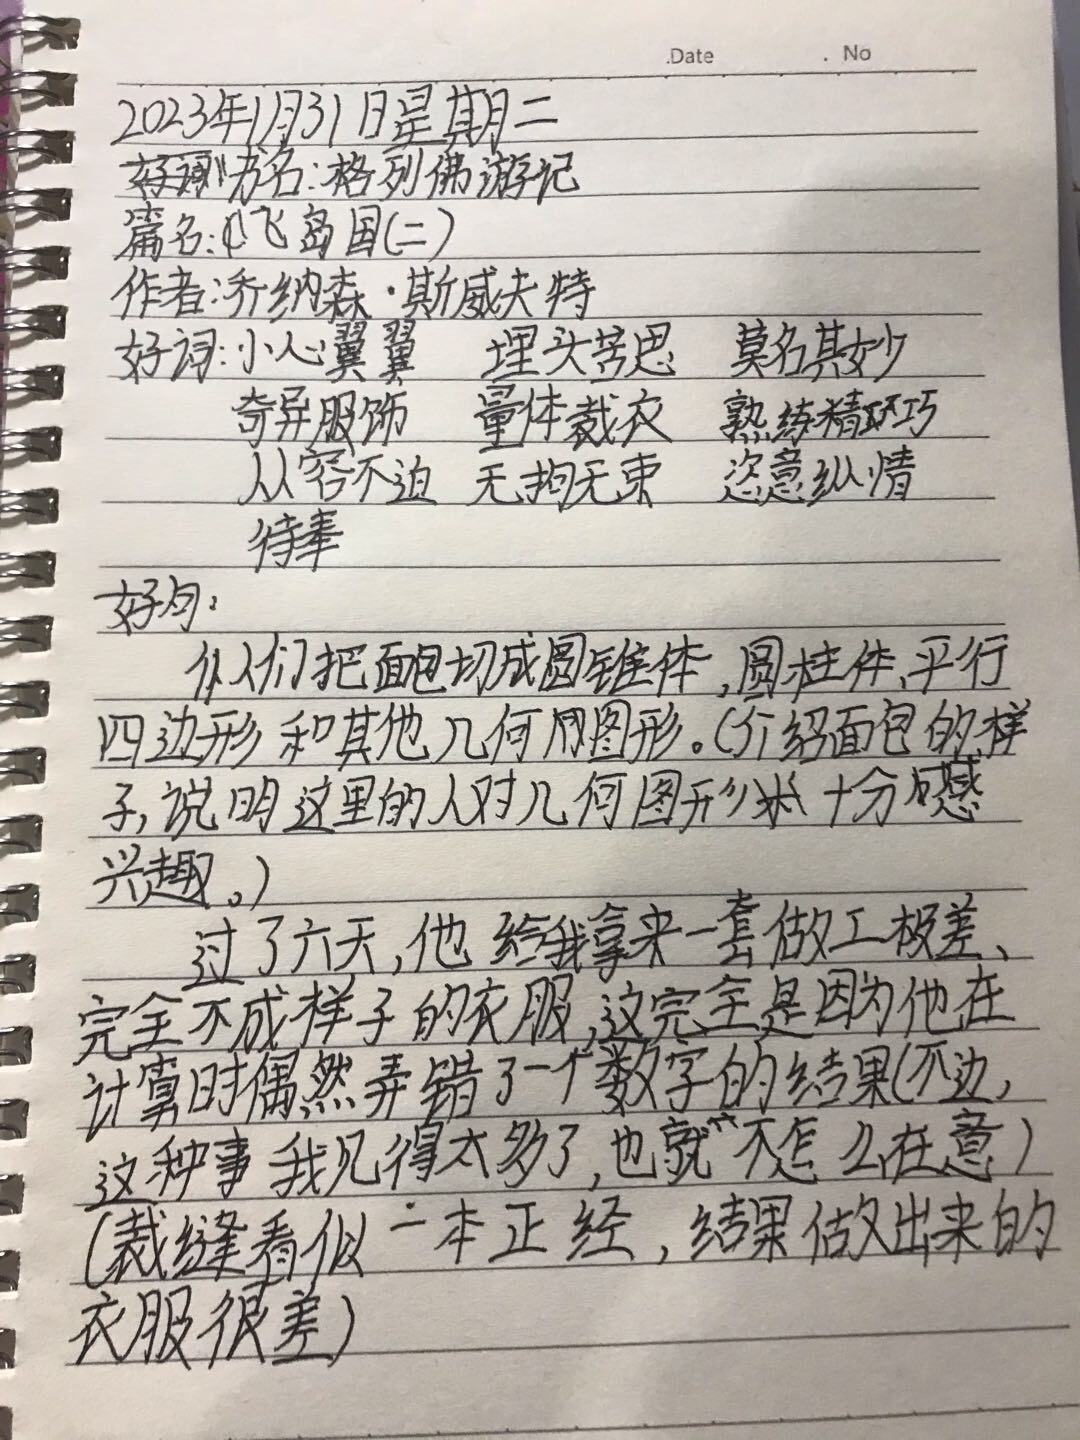 Date No
2023年1月31日星期二
书名:格列佛游记
篇名:飞岛国(二)
作者:乔纳森·斯威夫特
好词:小心翼翼 埋头苦思 莫名其妙
奇异服饰 量体裁衣 熟练精巧
从容不迫 无拘无束 恣意纵情
侍奉
好句:
他们把面包切成圆锥体,圆柱体、平行
四边形和其他几何图形。(介绍面包的样
子,说明这里的人对几何图形十分感
兴趣。)
过了六天,他给我拿来一套做工极差、
完全不成样子的衣服,这完全是因为他在
计算时偶然弄错了一个数字的结果(不过,
这种事我见得太多了,也就不怎么在意)
(裁缝看似一本正经,结果做出来的
衣服很差)